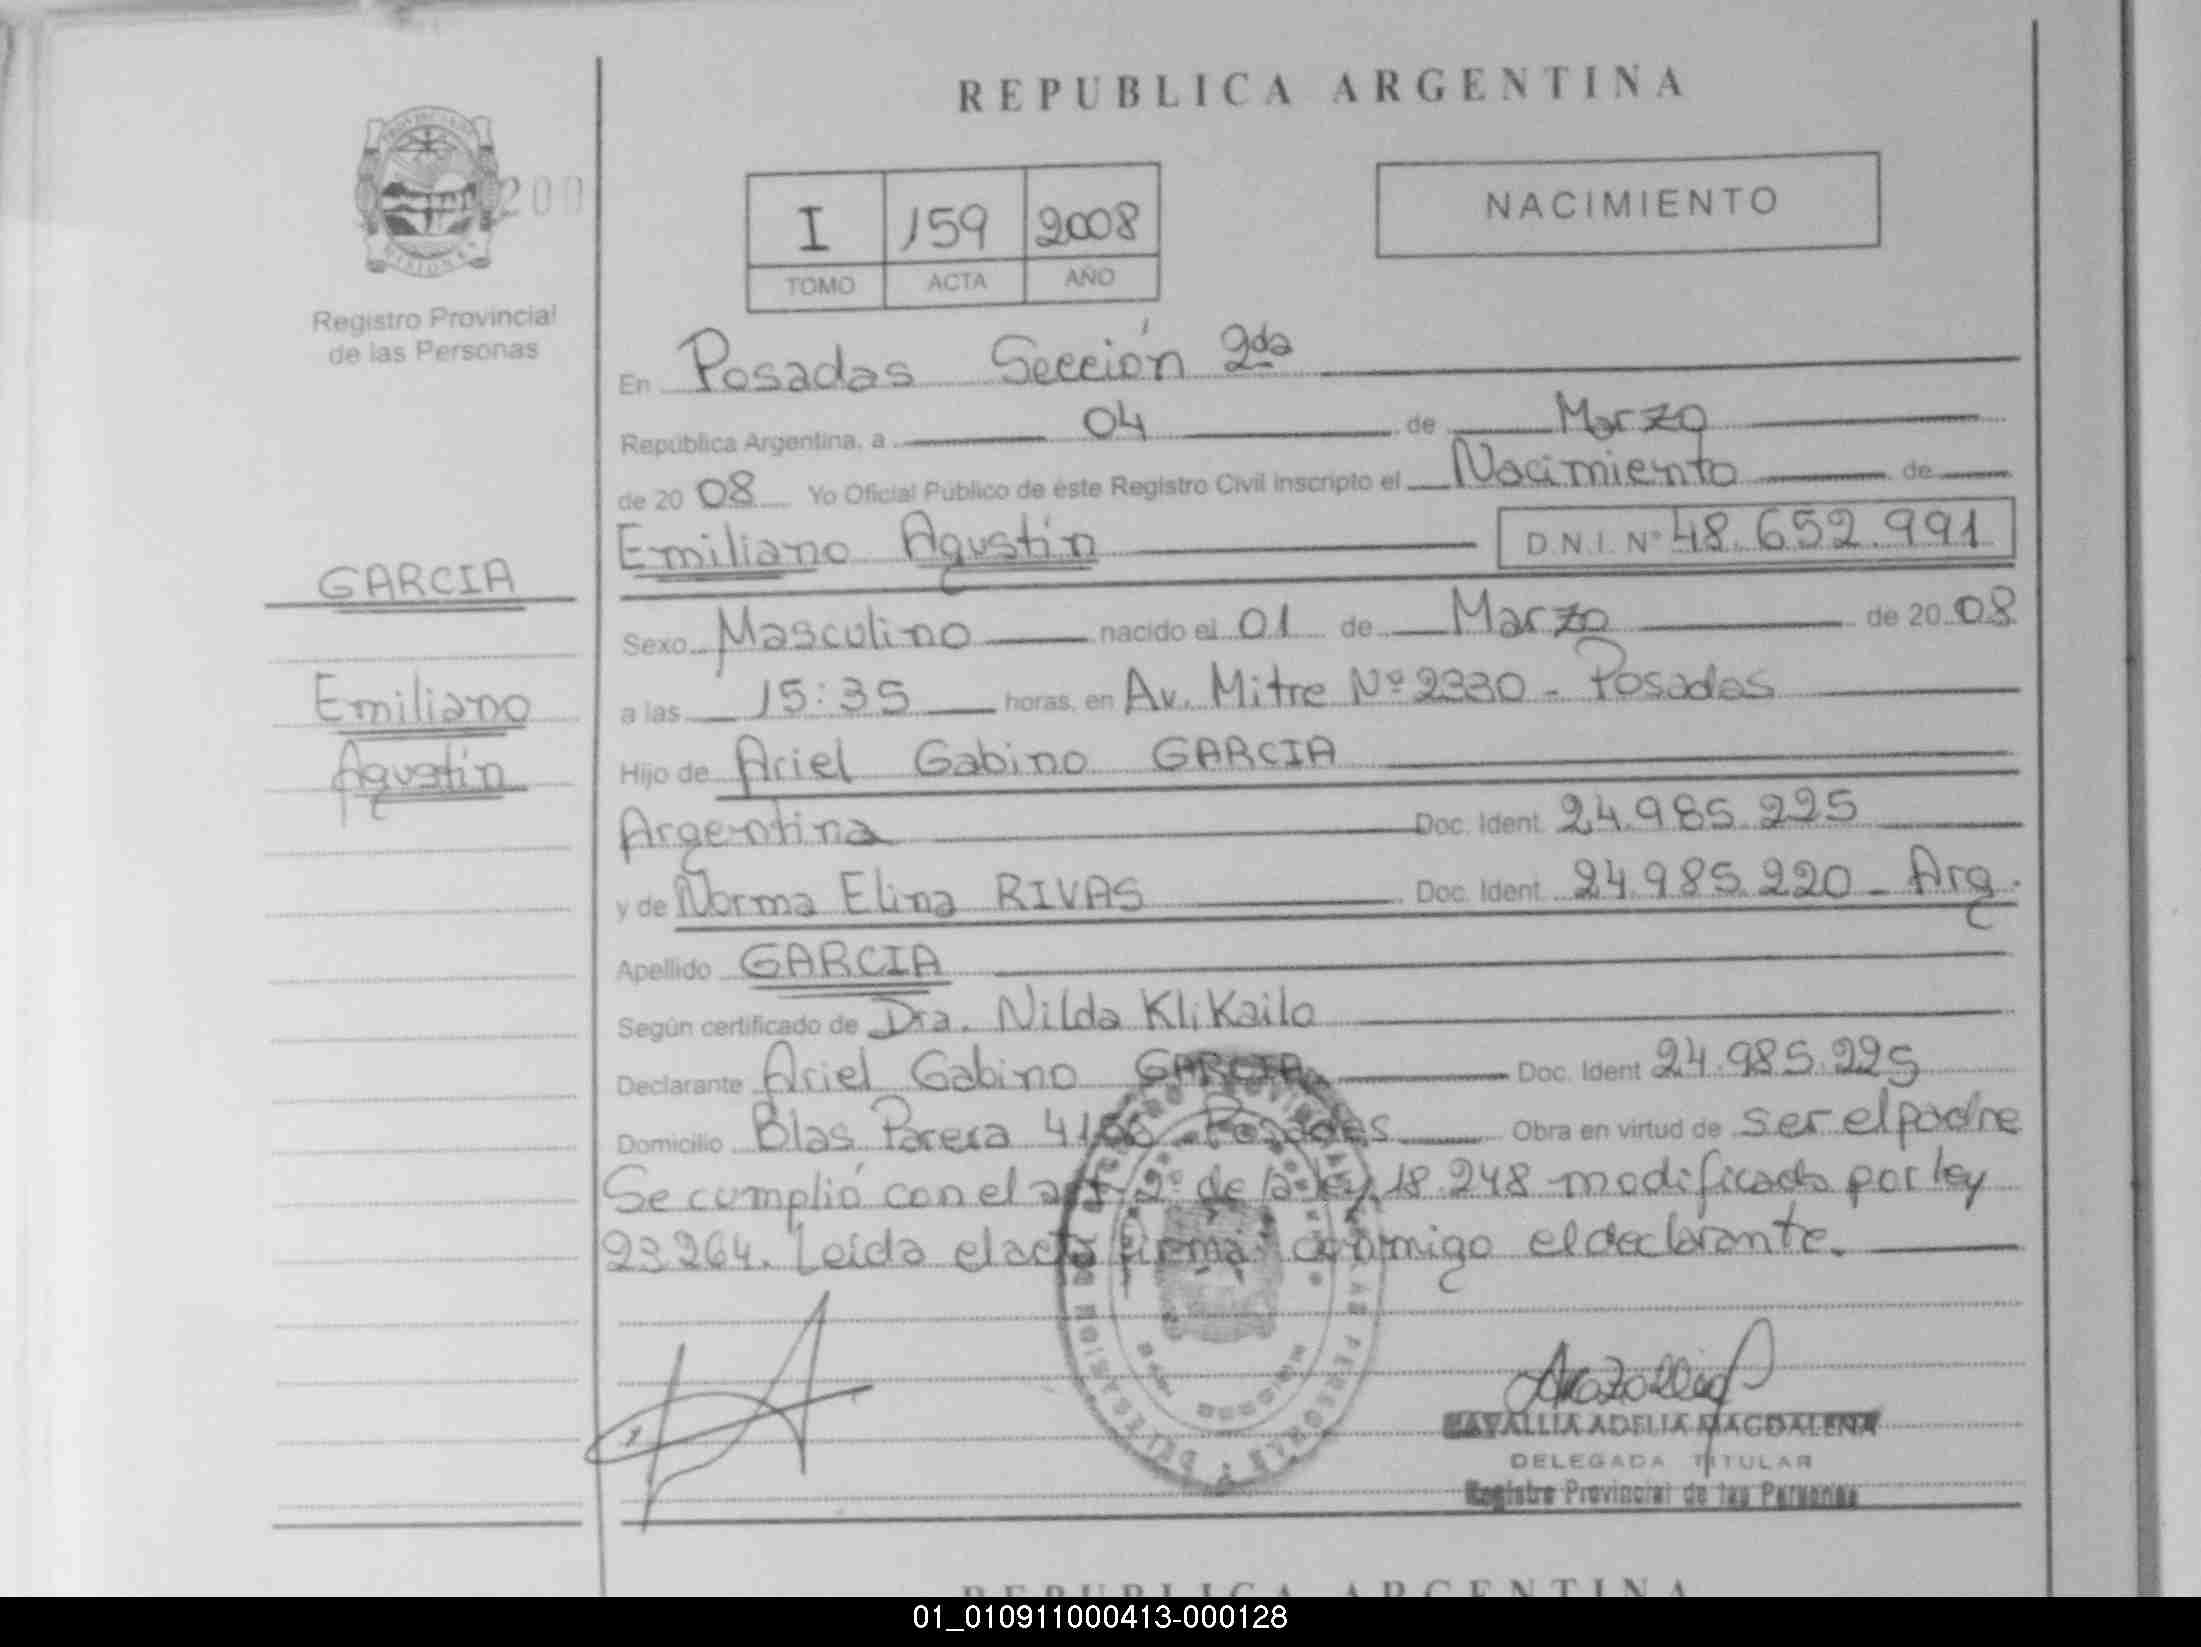 REPUBLICA ARGENTINA
PROVINCIA DE
MISIONES
200
Registro Provincial
de las Personas
NACIMIENTO
I 159 2008
TOMO ACTA AÑO
En Posadas Sección 2da
República Argentina, a 04 de Marzo
de 2008 Yo Oficial Público de éste Registro Civil inscripto el Nacimiento de
Emiliano Agustín D.N.I. Nº 48.652.991
GARCIA
Sexo Masculino nacido el 01 de Marzo de 2008
Emiliano
a las 15:35 horas, en Av. Mitre Nº 2330 - Posadas
Agustín
Hijo de Ariel Gabino GARCIA
Argentina Doc. Ident. 24.985.225
y de Norma Elina RIVAS Doc. Ident. 24.985.220 - Arg.
Apellido GARCIA
Según certificado de Dra. Nilda KliKailo
Declarante Ariel Gabino GARCIA Doc. Ident 24.985.225
Domicilio Blas Parera - Posadas Obra en virtud de ser el padre
Se cumplió con el art 2º de la ley 18.248 modificada por ley
23.264. Leída el acta firma conmigo el declarante.
ADELIA MAGDALENA
DELEGADA TITULAR
Registro Provincial de las Personas
REPUBLICA ARGENTINA
01_010911000413-000128